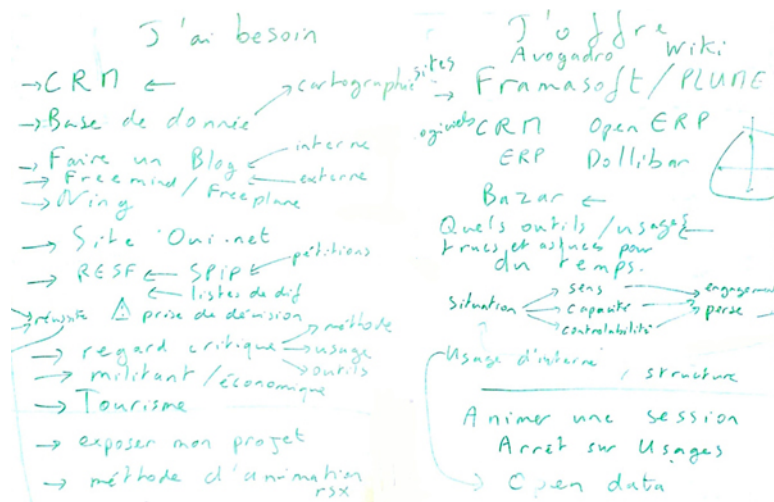 J'ai besoin
→ CRM ←
→ Base de donnée → cartographie
→ Faire un Blog ← interne
← externe
→ Freemind / Freeplane
→ Ning
→ Site Oui.net
→ RESF ← SPIP ← pétitions
← listes de dif
→ réussite ⚠ prise de décision
→ regard critique → méthode
→ usage
→ outils
→ militant / économique
→ Tourisme
→ exposer mon projet
→ méthode d'animation
rsx
J'offre
Avogadro Wiki
sites
→ Framasoft / PLUME
ogiciels CRM Open ERP
ERP Dollibar
Bazar ←
Quels outils / usages ←
trucs et astuces pour
du temps.
situation → sens → engagement
→ capacité → perse
→ controlabilité
Usage d'interne
/ structure
Animer une session
Arrêt sur Usages
→ Open data